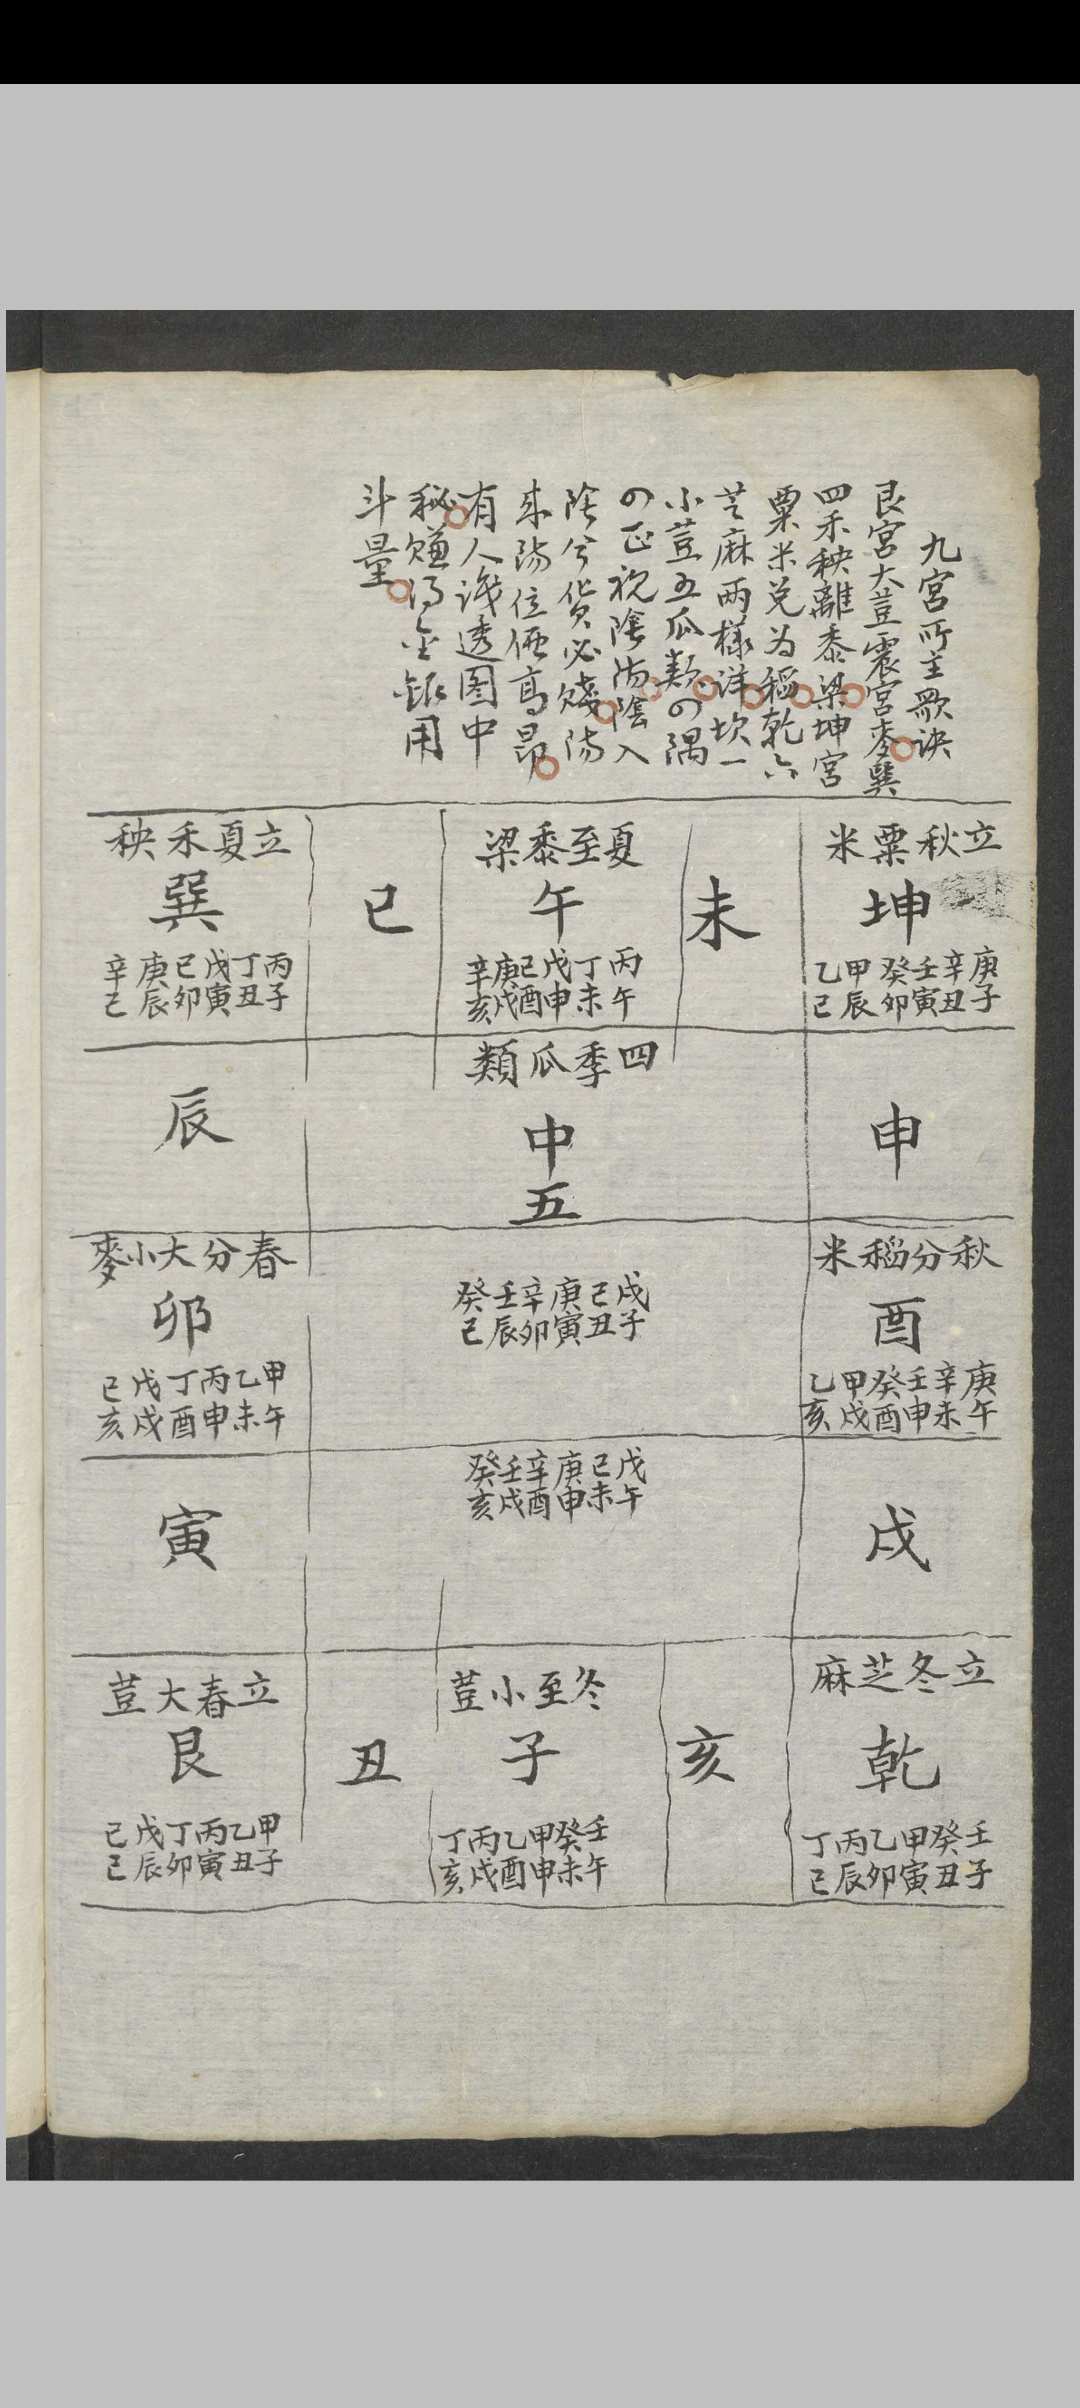 九宮所主歌訣
艮宮大荳震宮麥巽
四禾秧離黍梁坤宮
粟米兑为稻乾六
芝麻兩樣详坎一
小荳五瓜類の隅
の正視陰陽陰入
陰兮貨必賤陽
來陽位価髙昻
有人識透图中
秘赚得金銀用
斗量
立秋粟米
坤
庚辛壬癸甲乙
子丑寅卯辰巳
未
夏至黍梁
午
丙丁戊己庚辛
午未申酉戌亥
巳
立夏禾秧
巽
丙丁戊己庚辛
子丑寅卯辰巳
申
四季瓜類
中
五
辰
秋分稻米
酉
庚辛壬癸甲乙
午未申酉戌亥
戊己庚辛壬癸
子丑寅卯辰巳
春分大小麥
卯
甲乙丙丁戊己
午未申酉戌亥
戌
戊己庚辛壬癸
午未申酉戌亥
寅
立冬芝麻
乾
壬癸甲乙丙丁
子丑寅卯辰巳
亥
冬至小荳
子
壬癸甲乙丙丁
午未申酉戌亥
丑
立春大荳
艮
甲乙丙丁戊己
子丑寅卯辰巳